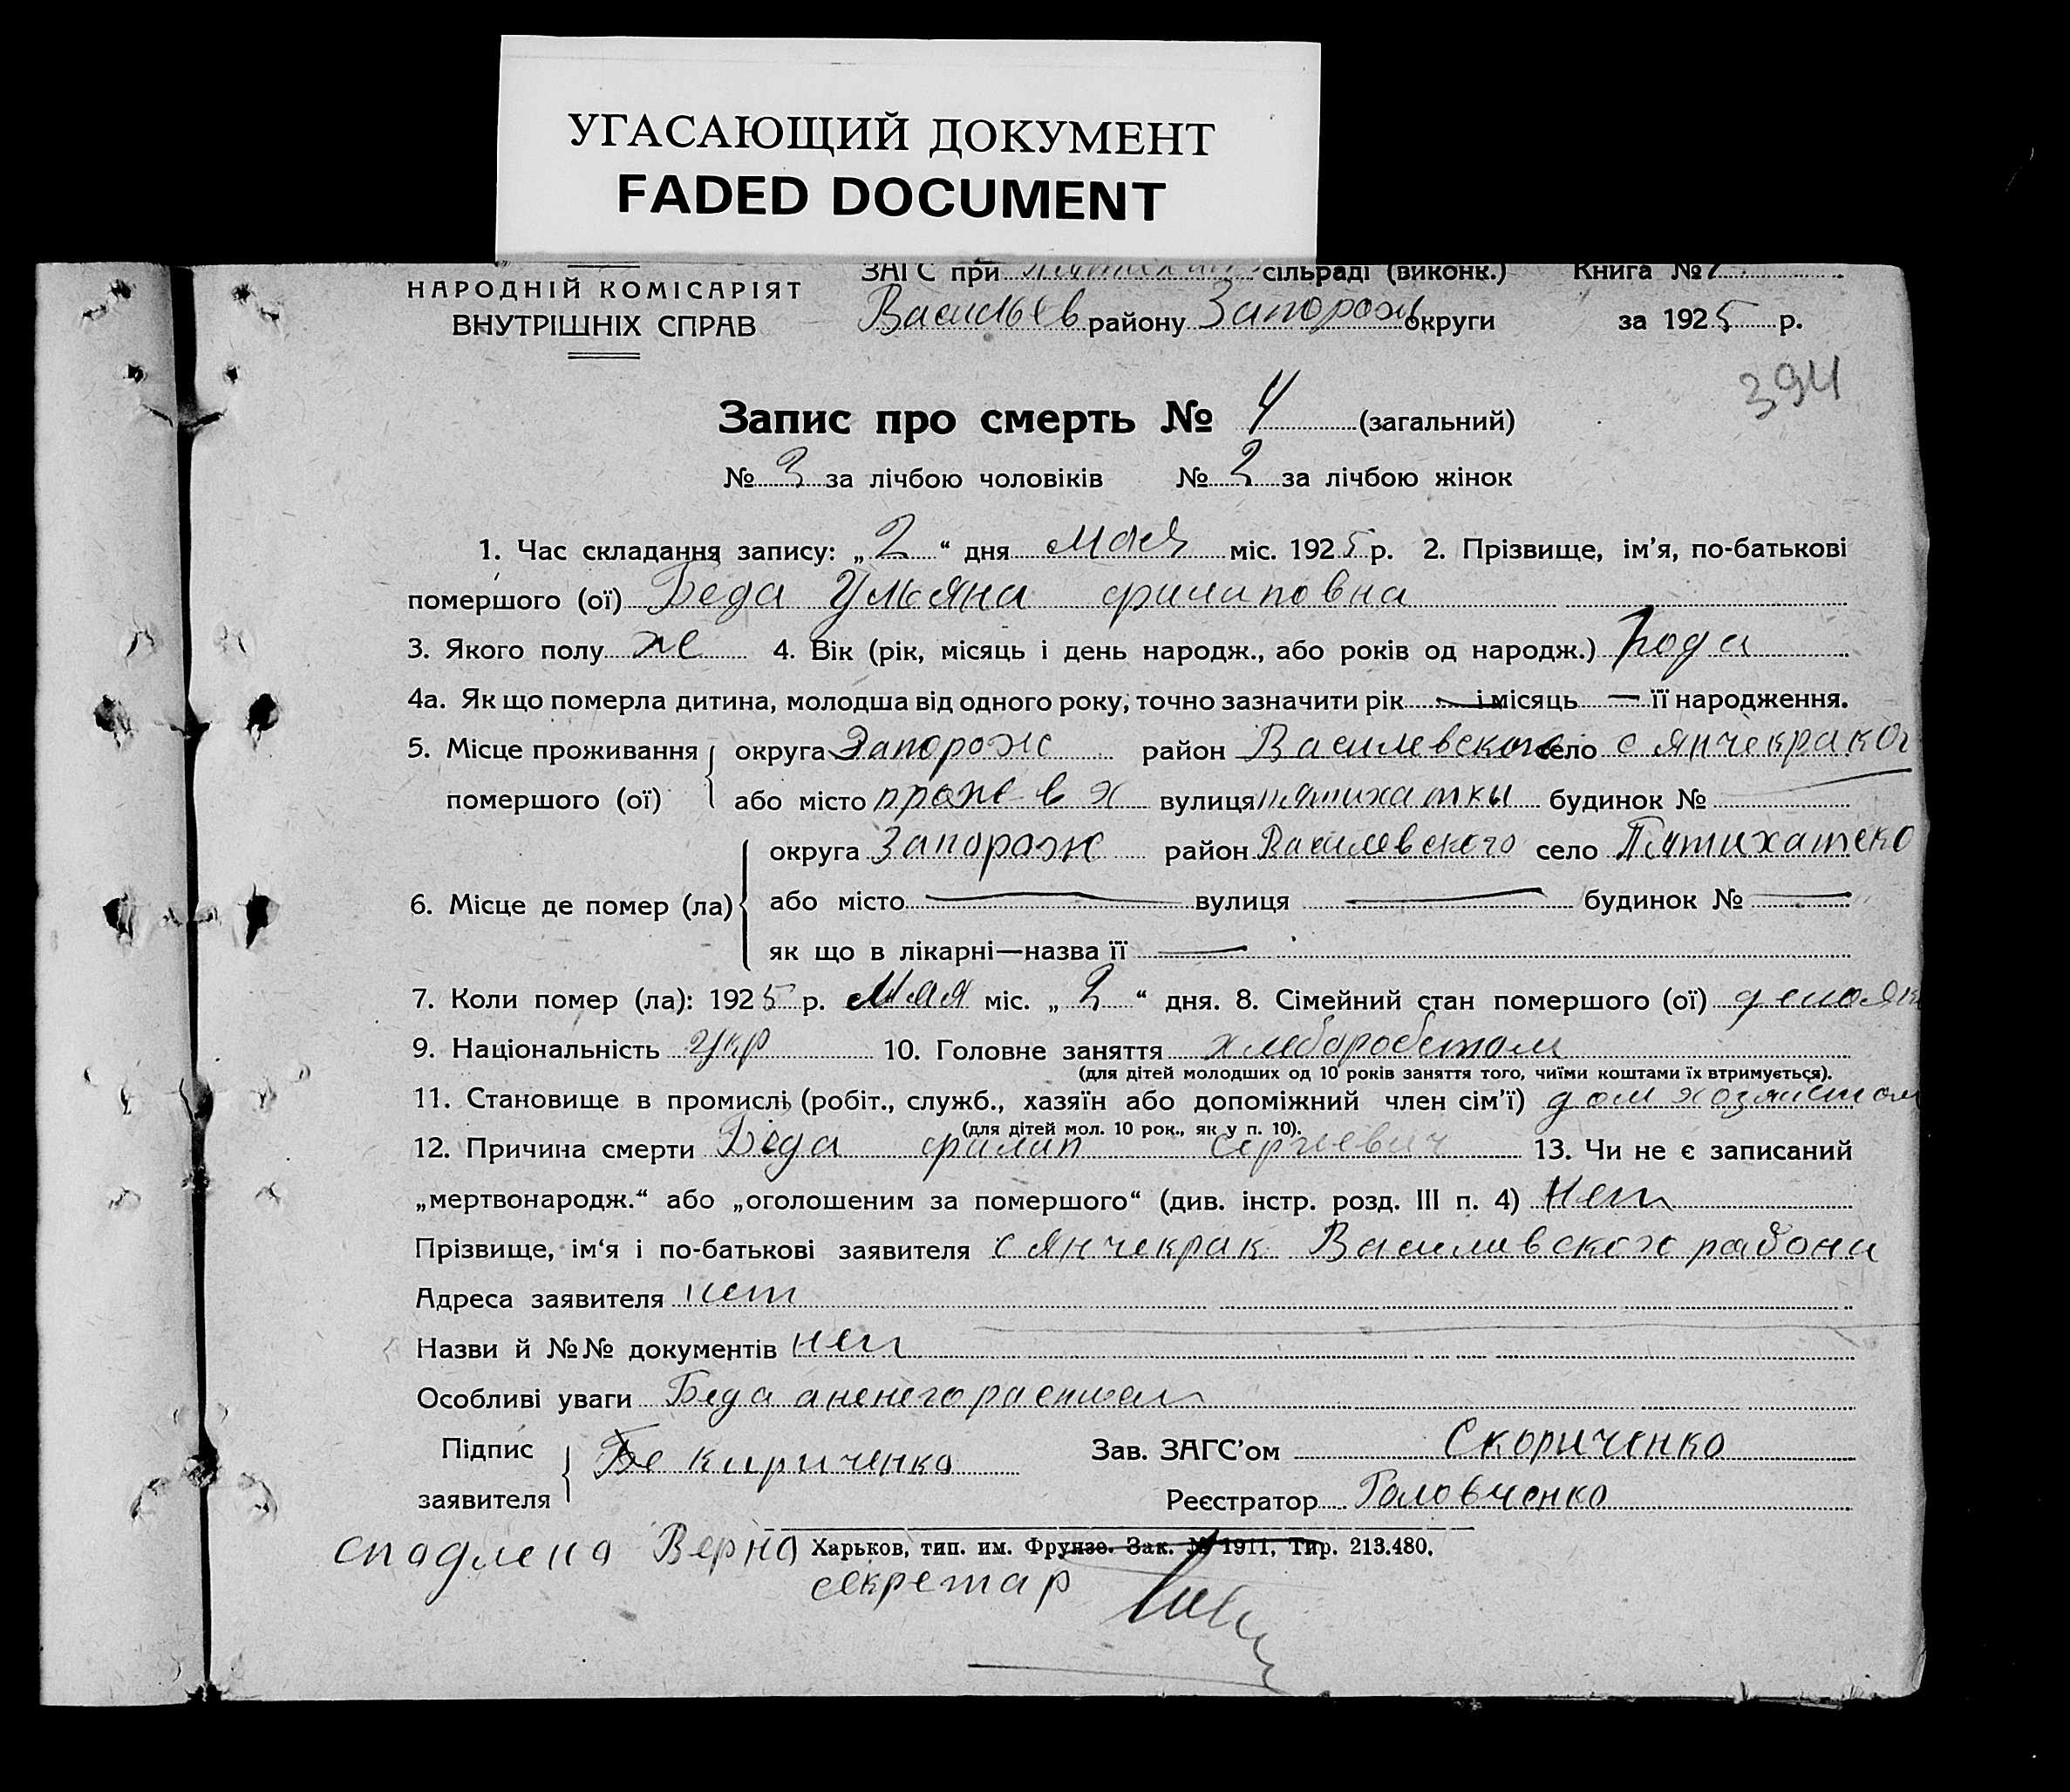 УГАСАЮЩИЙ ДОКУМЕНТ
FADED DOCUMENT
НАРОДНІЙ КОМІСАРІЯТ
ВНУТРІШНІХ СПРАВ
ЗАГС при сільраді (виконк.) Книга №
Васильев району Запорож округи за 1925 р.
394
Запис про смерть № 4 (загальний)
№ 3 за лічбою чоловіків № 2 за лічбою жінок
1. Час складання запису: „2“ дня мая міс. 1925 р. 2. Прізвище, ім'я, по-батькові
помершого (ої) Беда Ульяна филаповна
3. Якого полу же 4. Вік (рік, місяць і день народж., або років од народж.) года
4а. Як що померла дитина, молодша від одного року, точно зазначити рік — і місяць — її народження.
5. Місце проживання округа Запорож район Василевского село с янчекраког
помершого (ої) або місто прож в х вулиця пятихатки будинок №
округа Запорож район Василевского село Пятихатско
6. Місце де помер (ла) або місто — вулиця — будинок № —
як що в лікарні—назва її —
7. Коли помер (ла): 1925 р. Мая міс. „2“ дня. 8. Сімейний стан помершого (ої)
9. Національність Укр 10. Головне заняття хлеборобством
(для дітей молодших од 10 років заняття того, чиїми коштами їх втримується).
11. Становище в промислі (робіт., служб., хазяїн або допоміжний член сім'ї) дом хозяйством
(для дітей мол. 10 рок., як у п. 10).
12. Причина смерти Беда филап сергиевич 13. Чи не є записаний
„мертвонародж.“ або „оголошеним за помершого“ (див. інстр. розд. III п. 4) Нет
Прізвище, ім'я і по-батькові заявителя с янчекрак Василивског района
Адреса заявителя нет
Назви й №№ документів нет
Особливі уваги Беда
Підпис Бе кириченко Зав. ЗАГС'ом Скориченко
заявителя Реєстратор Головченко
Верно Харьков, тип. им. Фрунзе. Зак. № 1911, Тир. 213.480.
секретар